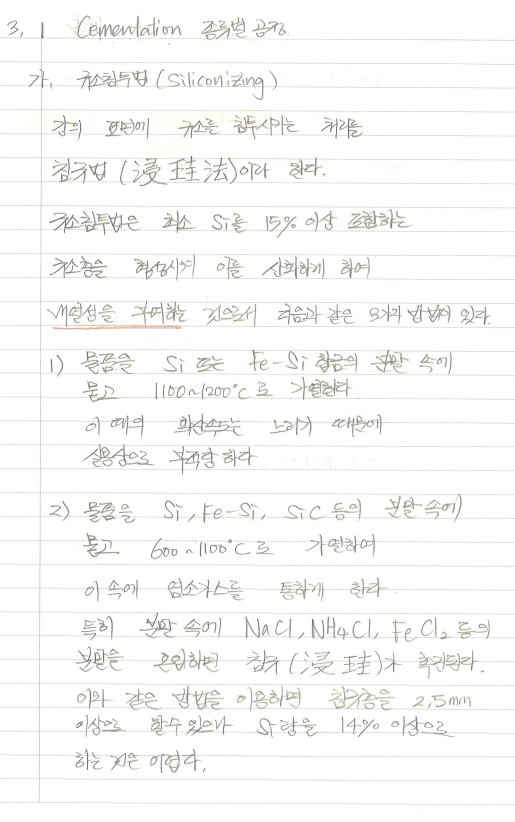 3, 1 Cementation 종류별 공정
가, 규소침투법 (Siliconizing)
강의 표면에 규소를 침투시키는 처리를
침규법 (浸珪法)이라 한다.
규소침투법은 최소 Si를 15% 이상 포함하는
규소층을 형성시켜 이를 산화하게 하여
내열성을 부여하는 것으로서 다음과 같은 3가지 방법이 있다.
1) 물품을 Si 또는 Fe-Si 합금의 분말 속에
묻고 1100~1200°C로 가열한다
이 때의 확산속도는 느리기 때문에
실용상으로 부적합하다
2) 물품을 Si, Fe-Si, SiC 등의 분말 속에
묻고 600~1100°C로 가열하여
이 속에 염소가스를 통하게 한다
특히 분말 속에 NaCl, NH4Cl, FeCl2 등의
분말을 혼입하면 침규 (浸珪)가 촉진된다.
이와 같은 방법을 이용하면 침규층을 2,5mm
이상으로 할 수 있으나 Si량을 14% 이상으로
하는 것은 어렵다.